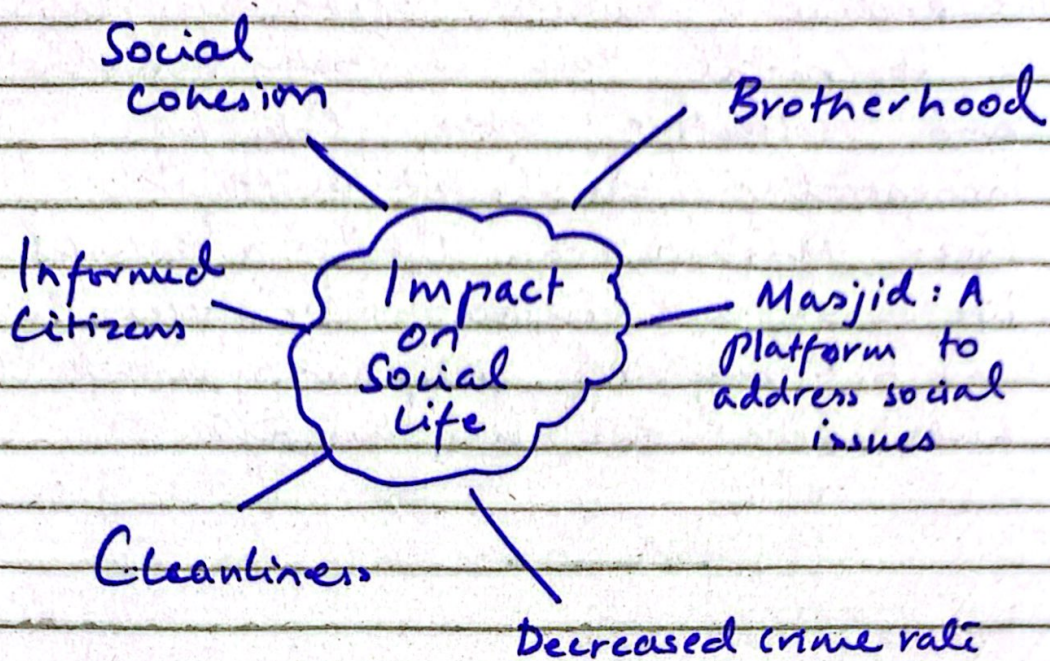 Social
cohesion
Brotherhood
Informed
Citizens
Impact
on
Social
Life
Masjid: A
Platform to
address social
issues
Cleanliness
Decreased crime rate